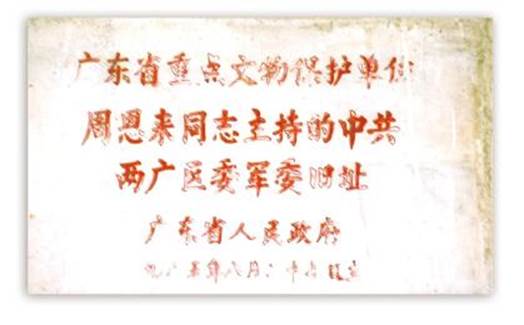 广东省重点文物保护单位
周恩来同志主持的中共
两广区委军委旧址
广东省人民政府